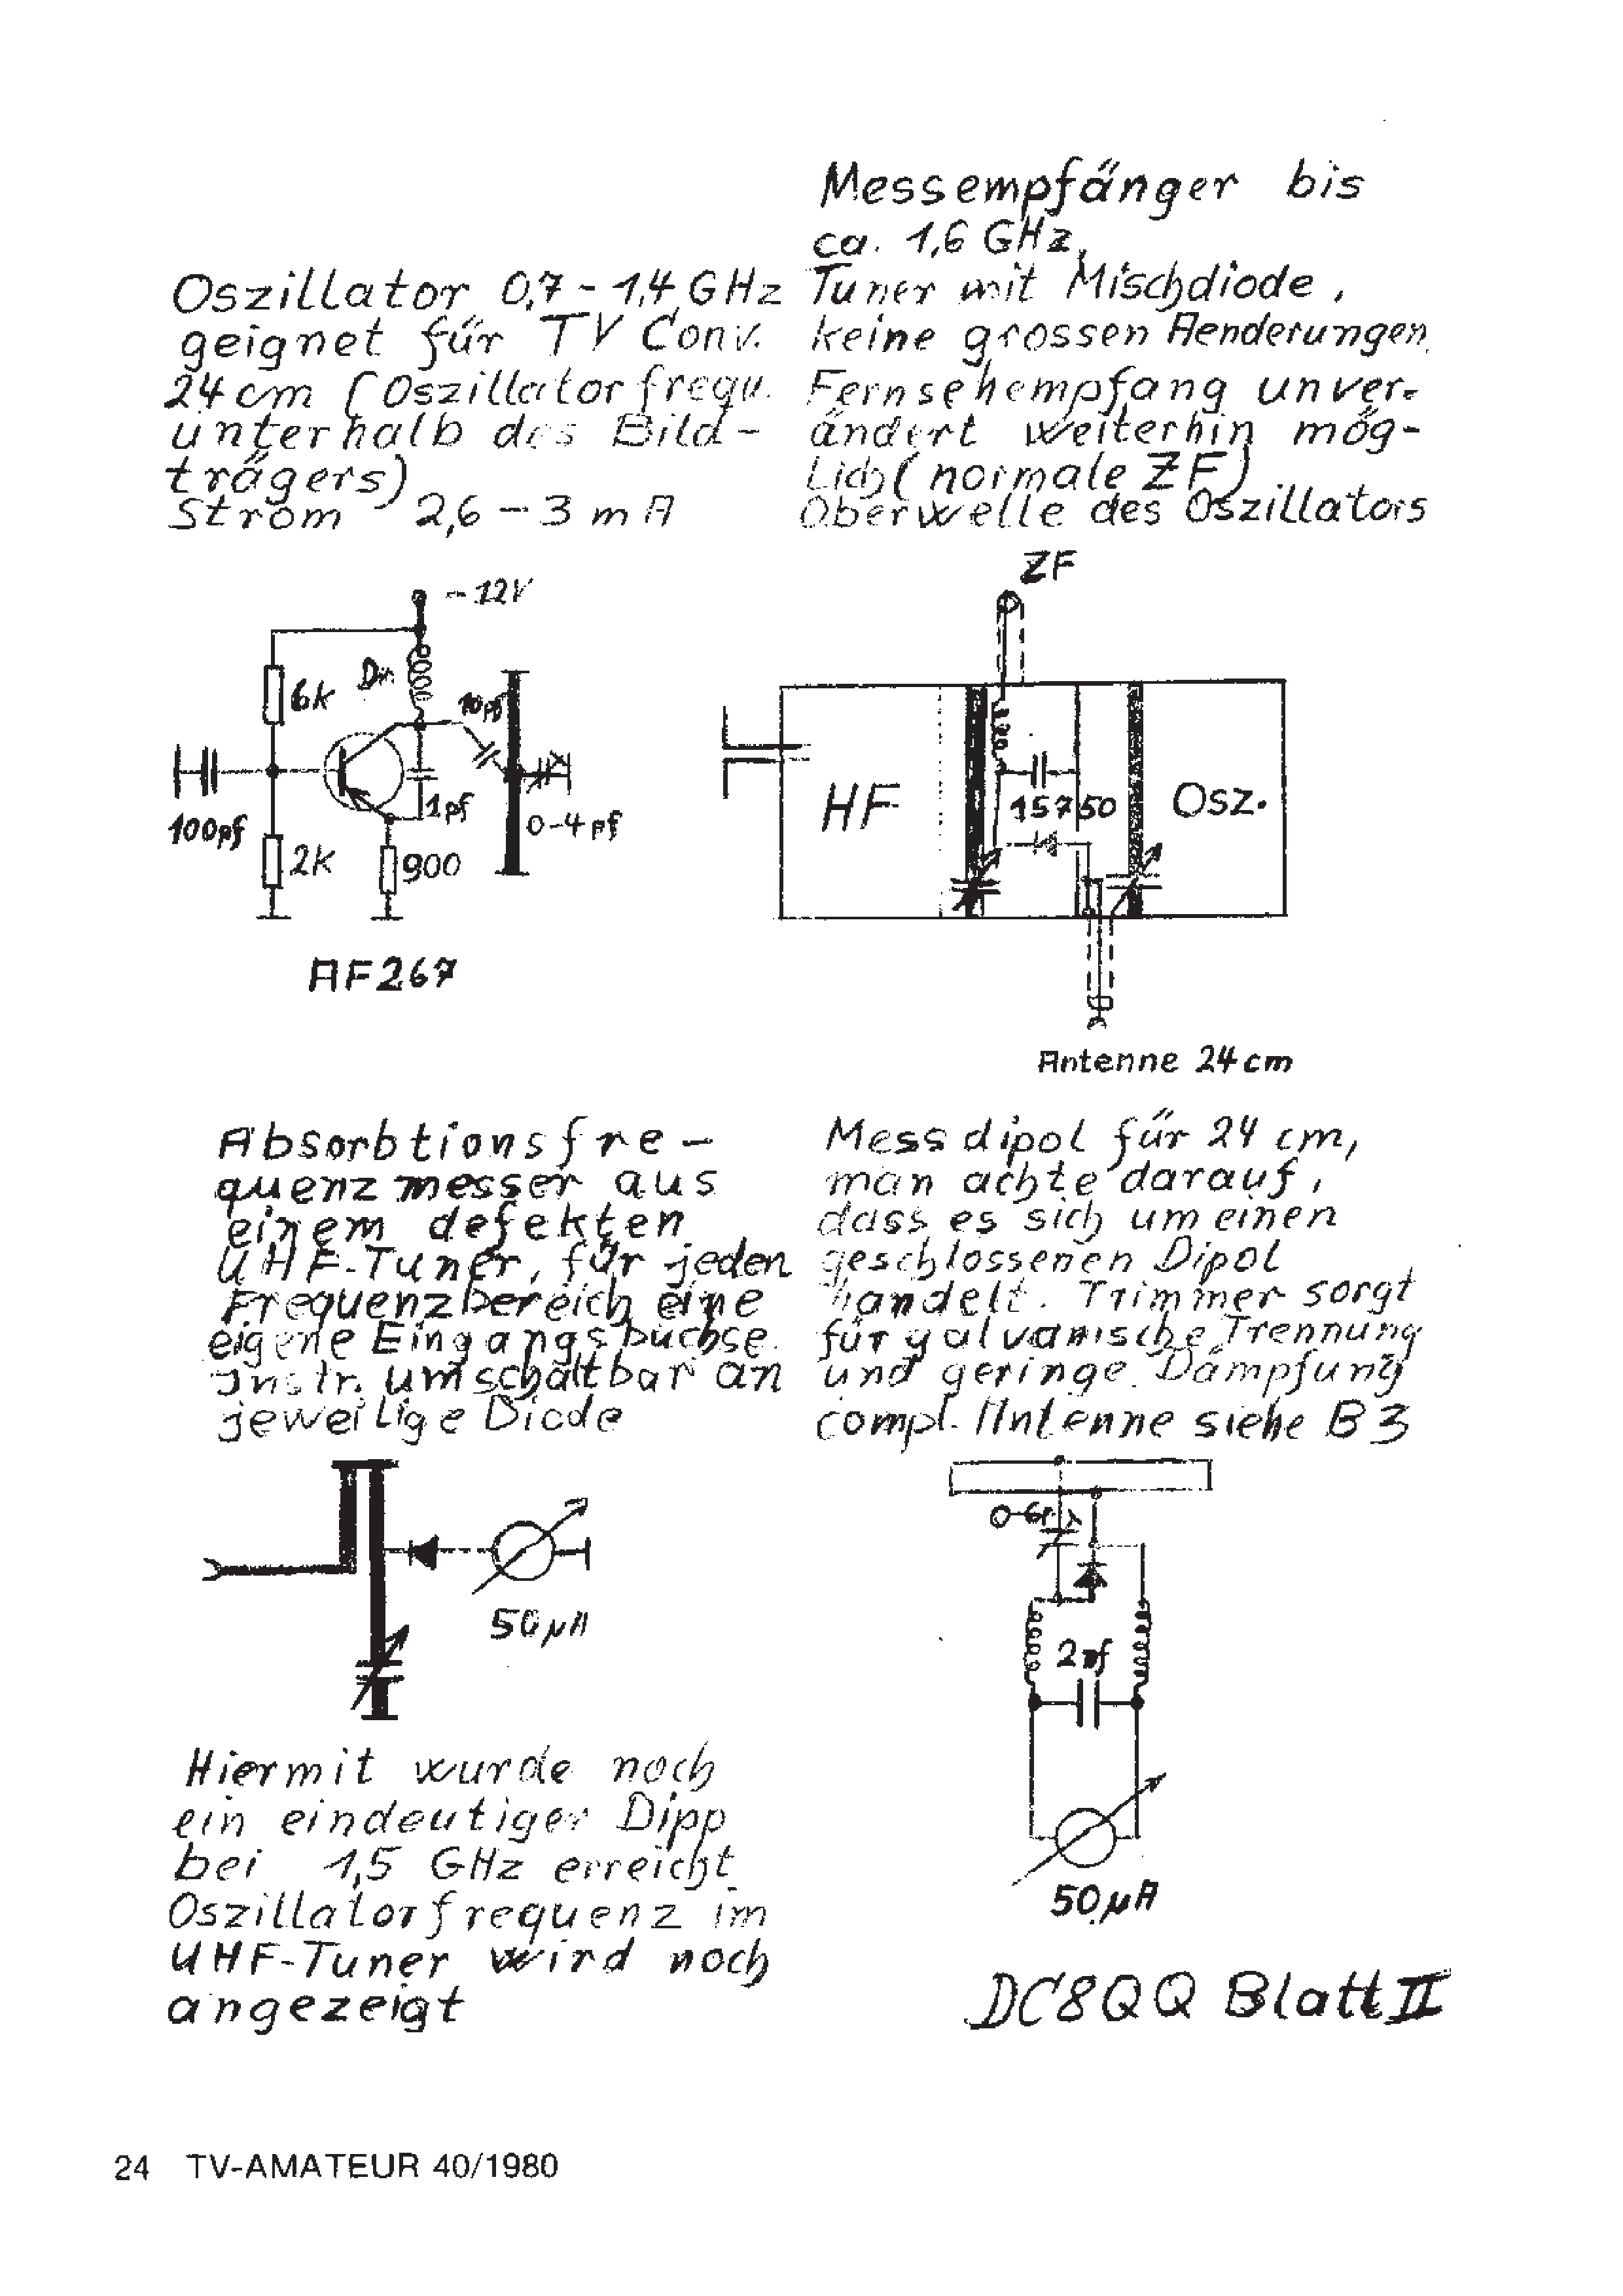 Oszillator 0,7 - 1,4 GHz
geignet für TV Conv.
24 cm (Oszillatorfrequ.
unterhalb des Bild-
trägers)
Strom 2,6 - 3 mA
- 12V
6k
Dr
10pf
100pf
1pf
0-4 pf
2k
900
AF267
Messempfänger bis
ca. 1,6 GHz,
Tuner mit Mischdiode,
keine grossen Aenderungen,
Fernsehempfang unver-
ändert weiterhin mög-
lich (normale ZF)
Oberwelle des Oszillators
ZF
HF
Osz.
Antenne 24 cm
Absorbtionsfre-
quenzmesser aus
einem defekten
UHF-Tuner, für jeden
Frequenzbereich eine
eigene Eingangsbuchse.
Instr. umschaltbar an
jeweilige Diode
50 µA
Hiermit wurde noch
ein eindeutiger Dipp
bei 1,5 GHz erreicht.
Oszillatorfrequenz im
UHF-Tuner wird noch
angezeigt
Messdipol für 24 cm,
man achte darauf,
dass es sich um einen
geschlossenen Dipol
handelt. Trimmer sorgt
für galvanische Trennung
und geringe Dämpfung
compl. Antenne siehe B3
2nf
50µA
DC8QQ Blatt II
24 TV-AMATEUR 40/1980